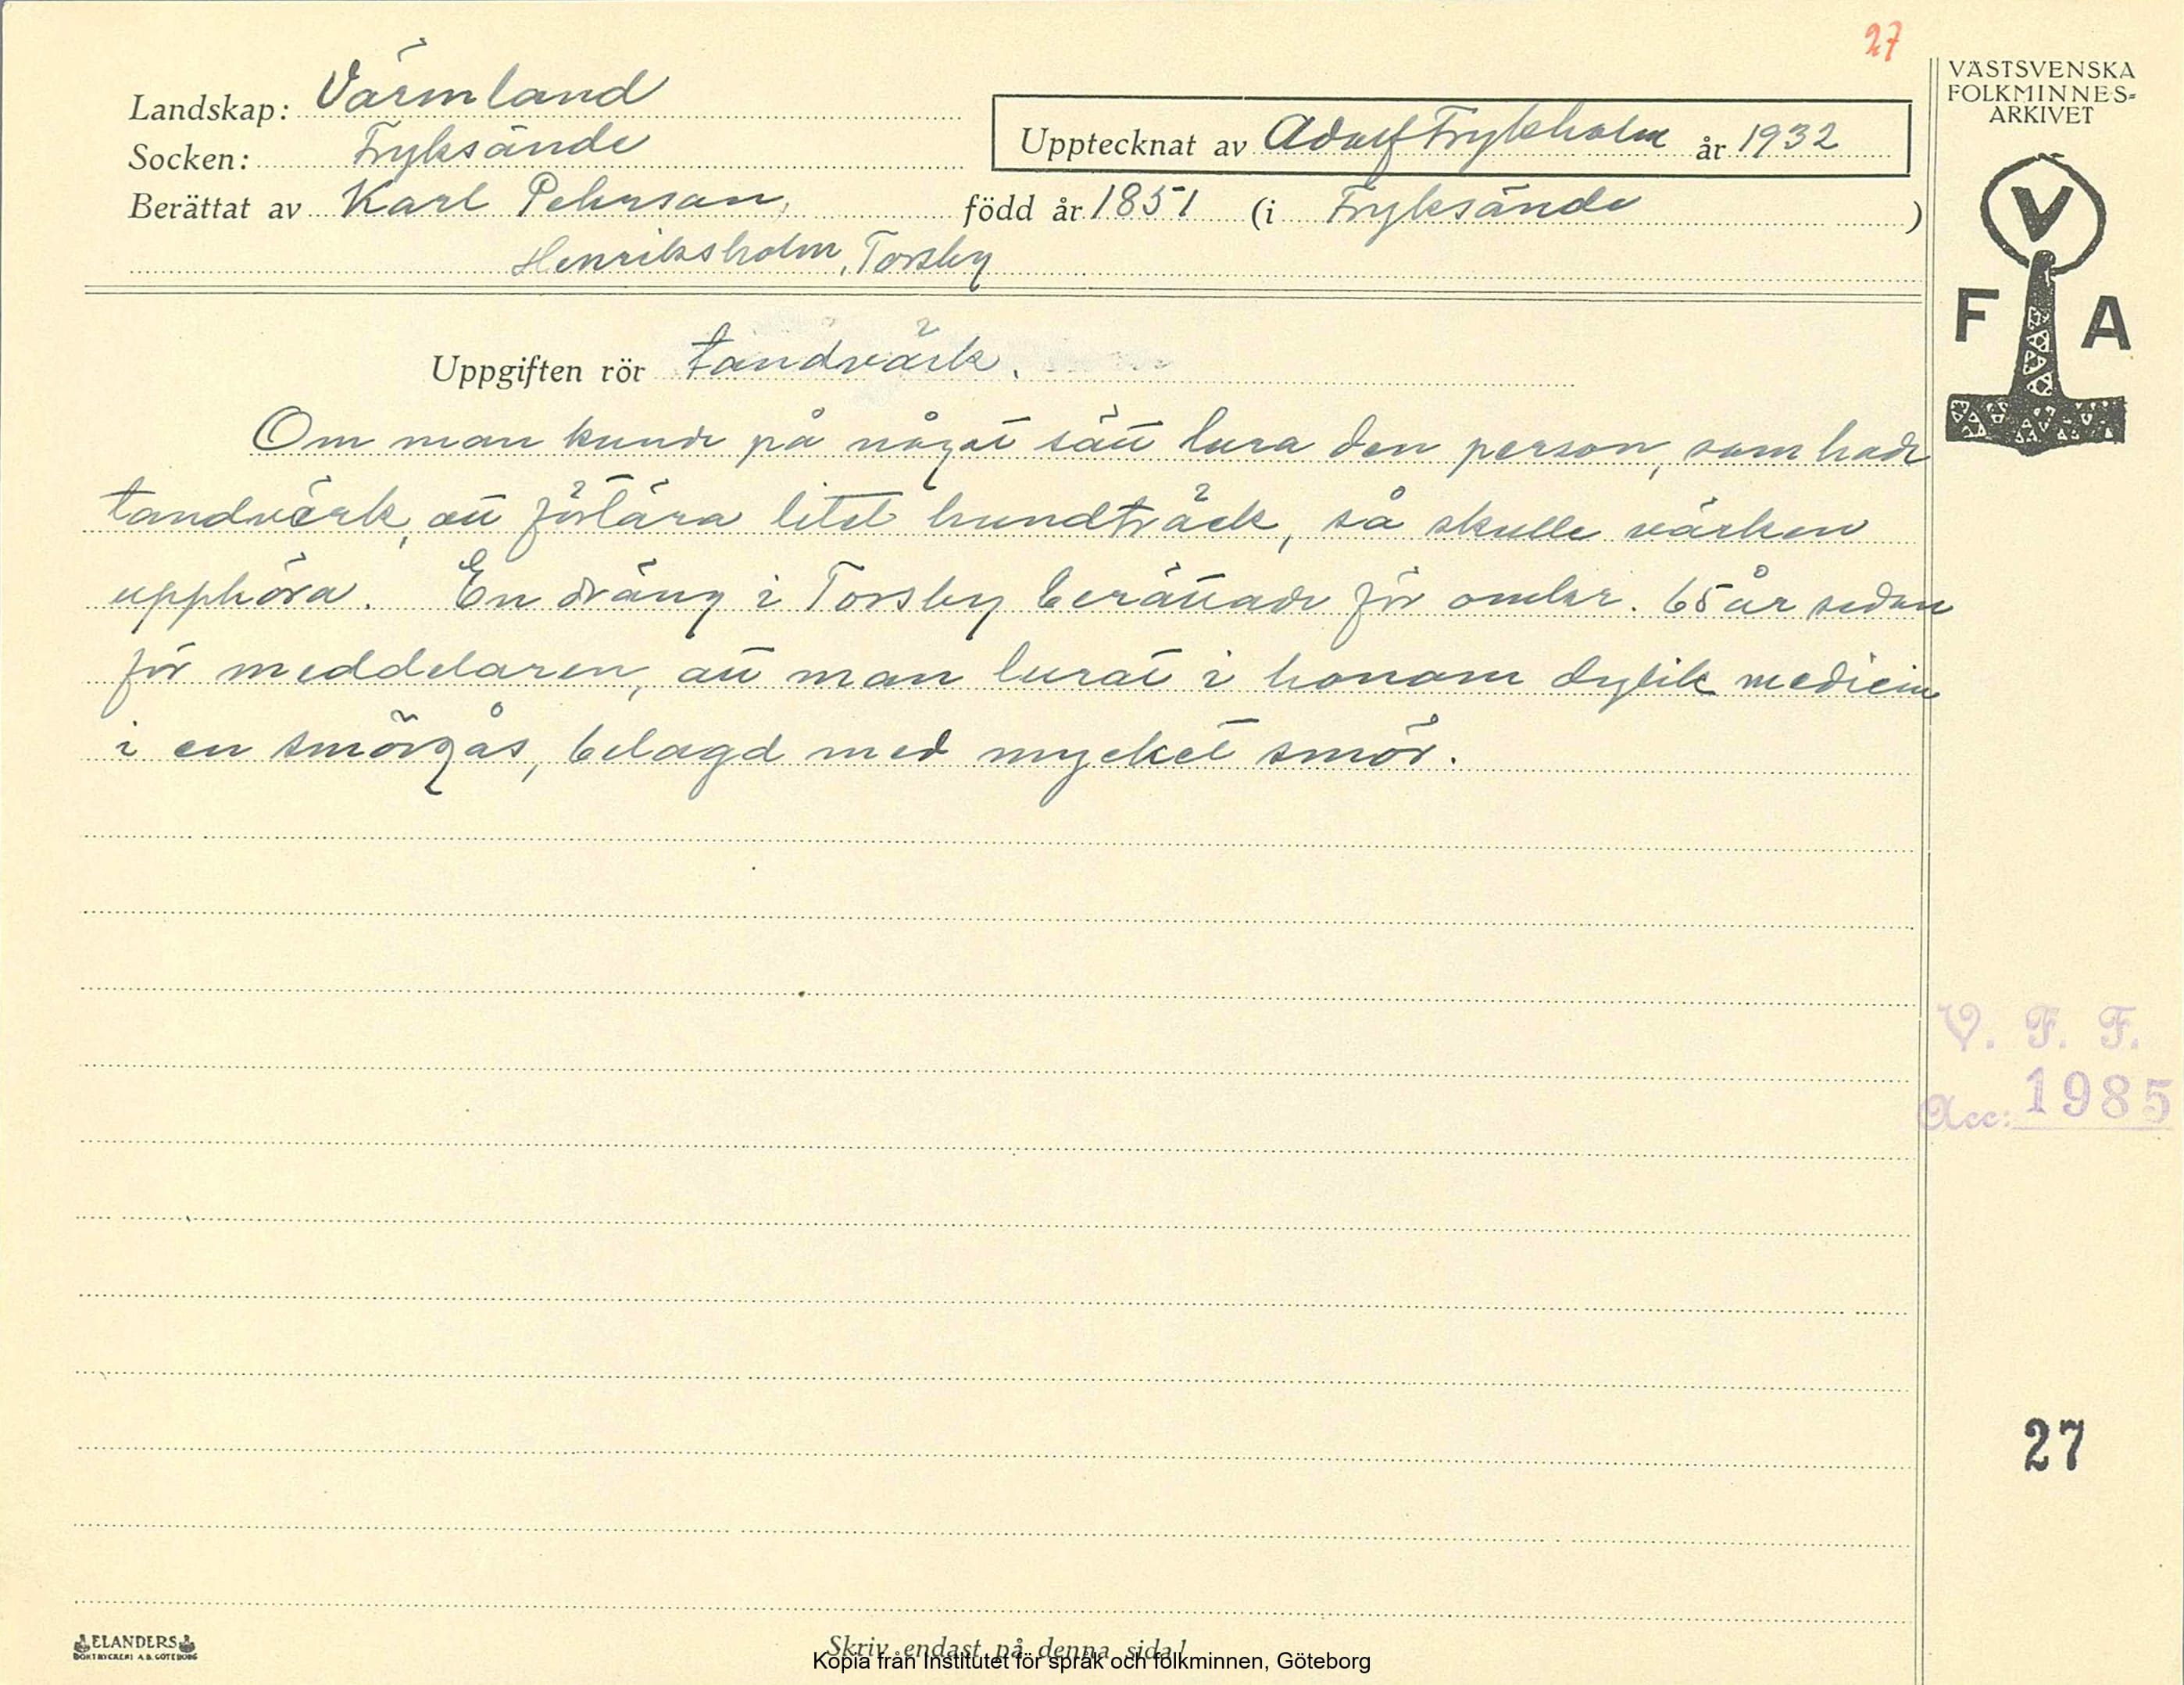 27
VÄSTSVENSKA
FOLKMINNES-
ARKIVET
Landskap: Värmland
Socken: Fryksände
Upptecknat av Adolf Frykholm år 1932
Berättat av Karl Pehrsson, född år 1851 (i Fryksände)
Henriksholm, Torsby
V
F A
Uppgiften rör tandvärk.
Om man kunde på något sätt lura den person, som hade
tandvärk, att förtära litet hundträck, så skulle värken
upphöra. En dräng i Torsby berättade för omkr. 65 år sedan
för meddelaren, att man lurat i honom dylik medicin
i en smörgås, belagd med mycket smör.
V. F. F.
Acc: 1985
27
ELANDERS
BOKTRYCKERI A.B. GÖTEBORG
Skriv endast på denna sida!
Kopia från Institutet för språk och folkminnen, Göteborg